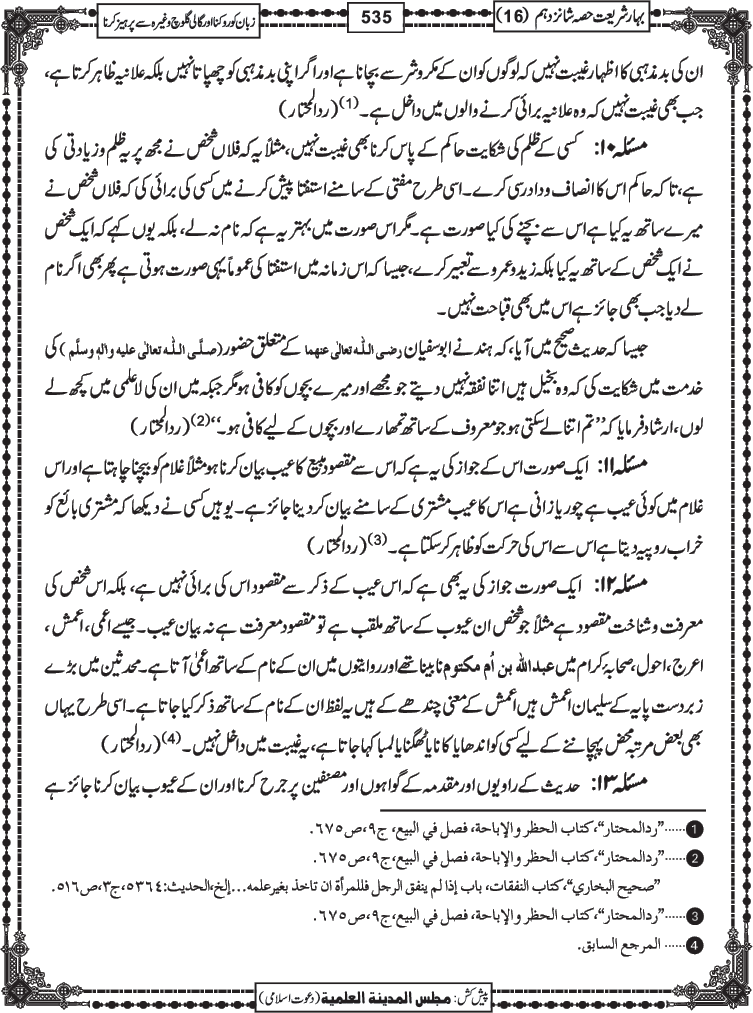 بہارِ شریعت حصہ شانزدہم (16)
535
زبان کو روکنا اور گالی گلوچ وغیرہ سے پرہیز کرنا
ان کی بدمذہبی کا اظہار غیبت نہیں کہ لوگوں کو ان کے مکر و شر سے بچانا ہے اور اگر اپنی بدمذہبی کو چھپاتا نہیں بلکہ علانیہ ظاہر کرتا ہے،
جب بھی غیبت نہیں کہ وہ علانیہ برائی کرنے والوں میں داخل ہے۔(1) (ردالمحتار)
مسئلہ ۱۰: کسی کے ظلم کی شکایت حاکم کے پاس کرنا بھی غیبت نہیں، مثلاً یہ کہ فلاں شخص نے مجھ پر یہ ظلم و زیادتی کی
ہے، تاکہ حاکم اس کا انصاف و دادرسی کرے۔ اسی طرح مفتی کے سامنے استفتا پیش کرنے میں کسی کی برائی کی کہ فلاں شخص نے
میرے ساتھ یہ کیا ہے اس سے بچنے کی کیا صورت ہے۔ مگر اس صورت میں بہتر یہ ہے کہ نام نہ لے، بلکہ یوں کہے کہ ایک شخص
نے ایک شخص کے ساتھ یہ کیا بلکہ زید و عمرو سے تعبیر کرے، جیسا کہ اس زمانہ میں استفتا کی عموماً یہی صورت ہوتی ہے پھر بھی اگر نام
لے دیا جب بھی جائز ہے اس میں بھی قباحت نہیں۔
جیسا کہ حدیث صحیح میں آیا، کہ ہند نے ابوسفیان رضی اللہ تعالٰی عنہما کے متعلق حضور (صلَّی اللہ تعالٰی علیہ واٰلہٖ وسلَّم) کی
خدمت میں شکایت کی کہ وہ بخیل ہیں اتنا نفقہ نہیں دیتے جو مجھے اور میرے بچوں کو کافی ہو مگر جبکہ میں ان کی لاعلمی میں کچھ لے
لوں، ارشاد فرمایا کہ ”تم اتنا لے سکتی ہو جو معروف کے ساتھ تمھارے اور بچوں کے لیے کافی ہو۔“(2) (ردالمحتار)
مسئلہ ۱۱: ایک صورت اس کے جواز کی یہ ہے کہ اس سے مقصود مبیع کا عیب بیان کرنا ہو مثلاً غلام کو بیچنا چاہتا ہے اور اس
غلام میں کوئی عیب ہے چور یا زانی ہے اس کا عیب مشتری کے سامنے بیان کر دینا جائز ہے۔ یوہیں کسی نے دیکھا کہ مشتری بائع کو
خراب روپیہ دیتا ہے اس سے اس کی حرکت کو ظاہر کر سکتا ہے۔(3) (ردالمحتار)
مسئلہ ۱۲: ایک صورت جواز کی یہ بھی ہے کہ اس عیب کے ذکر سے مقصود اس کی برائی نہیں ہے، بلکہ اس شخص کی
معرفت و شناخت مقصود ہے مثلاً جو شخص ان عیوب کے ساتھ ملقب ہے تو مقصود معرفت ہے نہ بیان عیب۔ جیسے اعمی، اعمش،
اعرج، احول، صحابۂ کرام میں عبداللہ بن اُم مکتوم نابینا تھے اور روایتوں میں ان کے نام کے ساتھ اعمیٰ آتا ہے۔ محدثین میں بڑے
زبردست پایہ کے سلیمان اعمش ہیں اعمش کے معنی چندھے کے ہیں یہ لفظ ان کے نام کے ساتھ ذکر کیا جاتا ہے۔ اسی طرح یہاں
بھی بعض مرتبہ محض پہچاننے کے لیے کسی کو اندھا یا کانا یا ٹھگنا یا لمبا کہا جاتا ہے، یہ غیبت میں داخل نہیں۔(4) (ردالمحتار)
مسئلہ ۱۳: حدیث کے راویوں اور مقدمہ کے گواہوں اور مصنفین پر جرح کرنا اور ان کے عیوب بیان کرنا جائز ہے
1 ......"ردالمحتار"، کتاب الحظر والإباحة، فصل في البيع، ج۹، ص٦٧٥.
2 ......"ردالمحتار"، کتاب الحظر والإباحة، فصل في البيع، ج۹، ص٦٧٥.
"صحيح البخاري"، کتاب النفقات، باب إذا لم ينفق الرجل فللمرأة ان تاخذ بغير علمه...إلخ، الحديث: ٥٣٦٤، ج٣، ص٥١٦.
3 ......"ردالمحتار"، کتاب الحظر والإباحة، فصل في البيع، ج۹، ص٦٧٥.
4 ...... المرجع السابق.
پیش کش: مجلس المدينة العلمية (دعوت اسلامی)